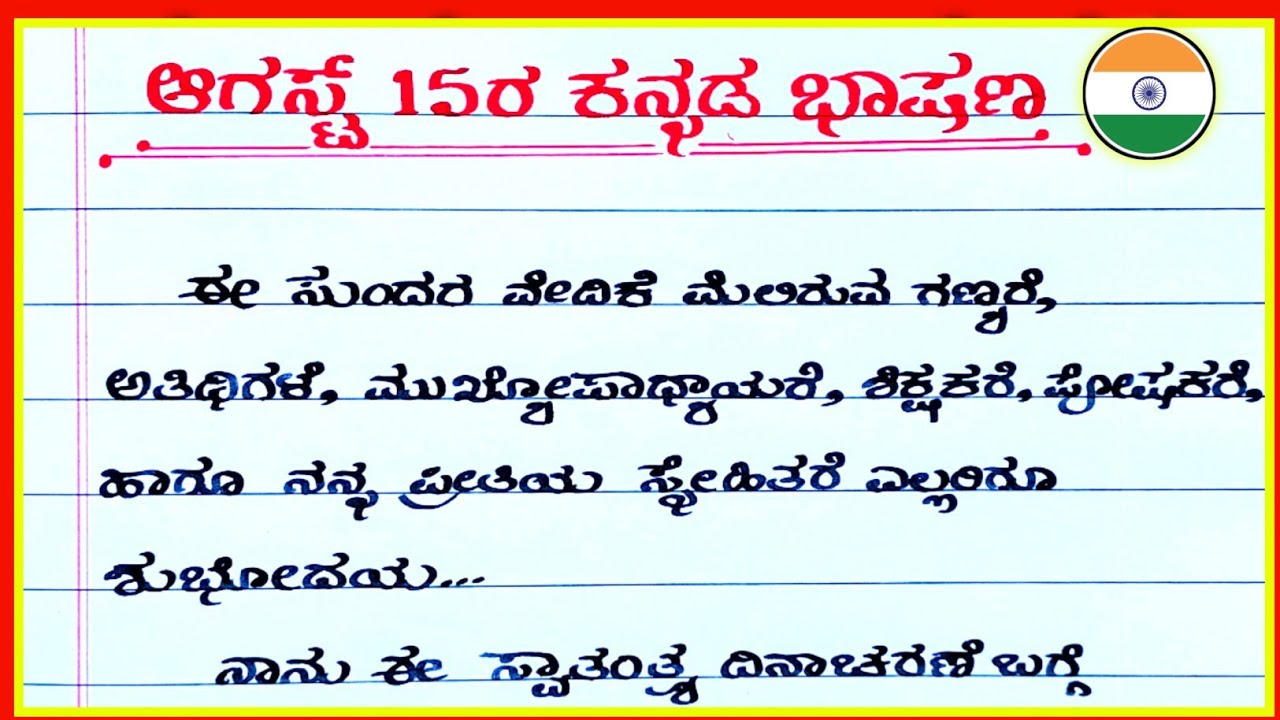 ಆಗಸ್ಟ್ 15ರ ಕನ್ನಡ ಭಾಷಣ
ಈ ಸುಂದರ ವೇದಿಕೆ ಮೆಲಿರುವ ಗಣ್ಯರೆ,
ಅತಿಥಿಗಳೆ, ಮುಖ್ಯೋಪಾಧ್ಯಾಯರೆ, ಶಿಕ್ಷಕರೆ, ಪೋಷಕರೆ,
ಹಾಗೂ ನನ್ನ ಪ್ರೀತಿಯ ಸ್ನೇಹಿತರೆ ಎಲ್ಲರಿಗೂ
ಶುಭೋದಯ...
ನಾನು ಈ ಸ್ವಾತಂತ್ರ್ಯ ದಿನಾಚರಣೆ ಬಗ್ಗೆ